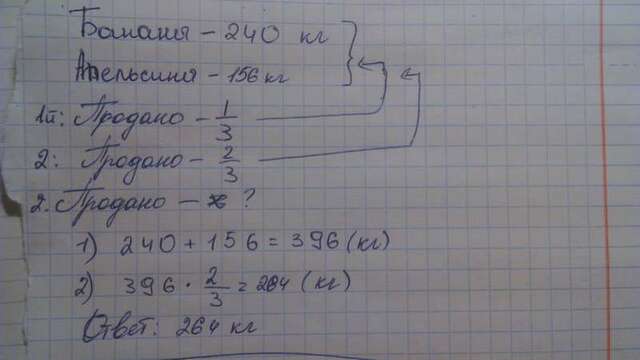 Бананы - 240 кг
Апельсины - 156 кг
1й: Продано - 1/3
2: Продано - 2/3
2. Продано - ?
1) 240 + 156 = 396 (кг)
2) 396 · 2/3 = 264 (кг)
Ответ: 264 кг